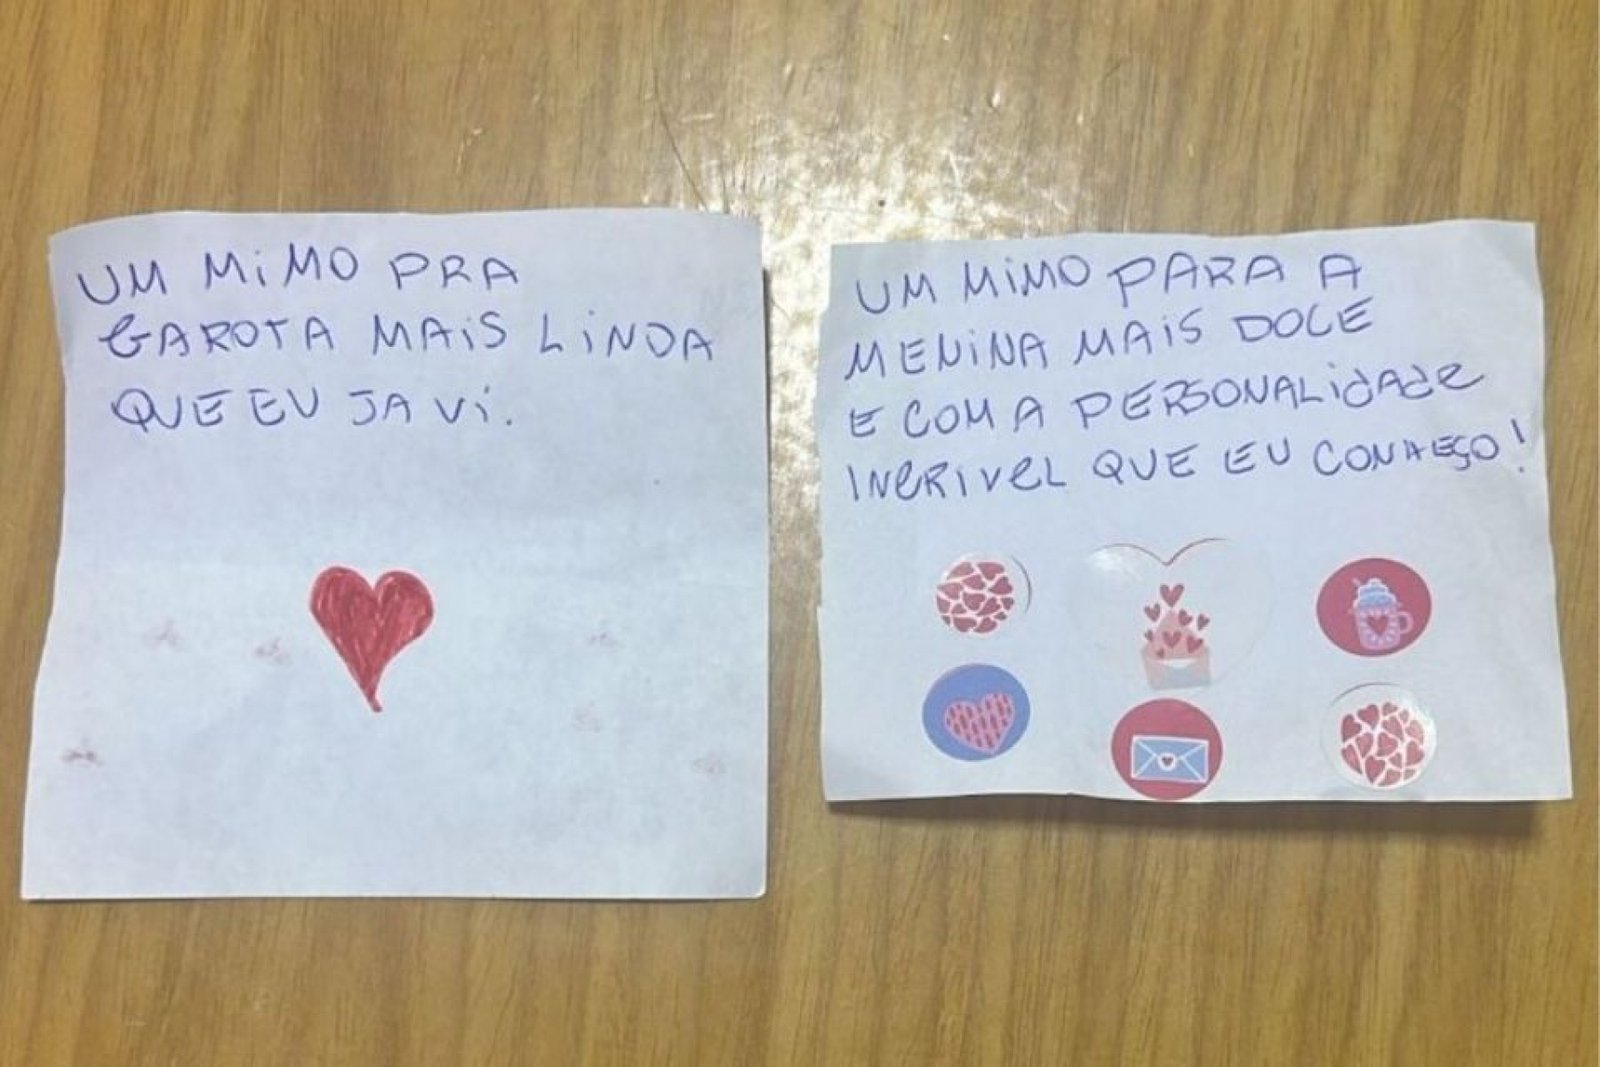 UM MiMO PRA
GAROTA MAiS LiNDA
QUE EU JA Vi.
UM MiMO PARA A
MENiNA MAiS DOCE
E COM A PERSONALidAde
INCRIVEL QUE EU CONHEÇO!